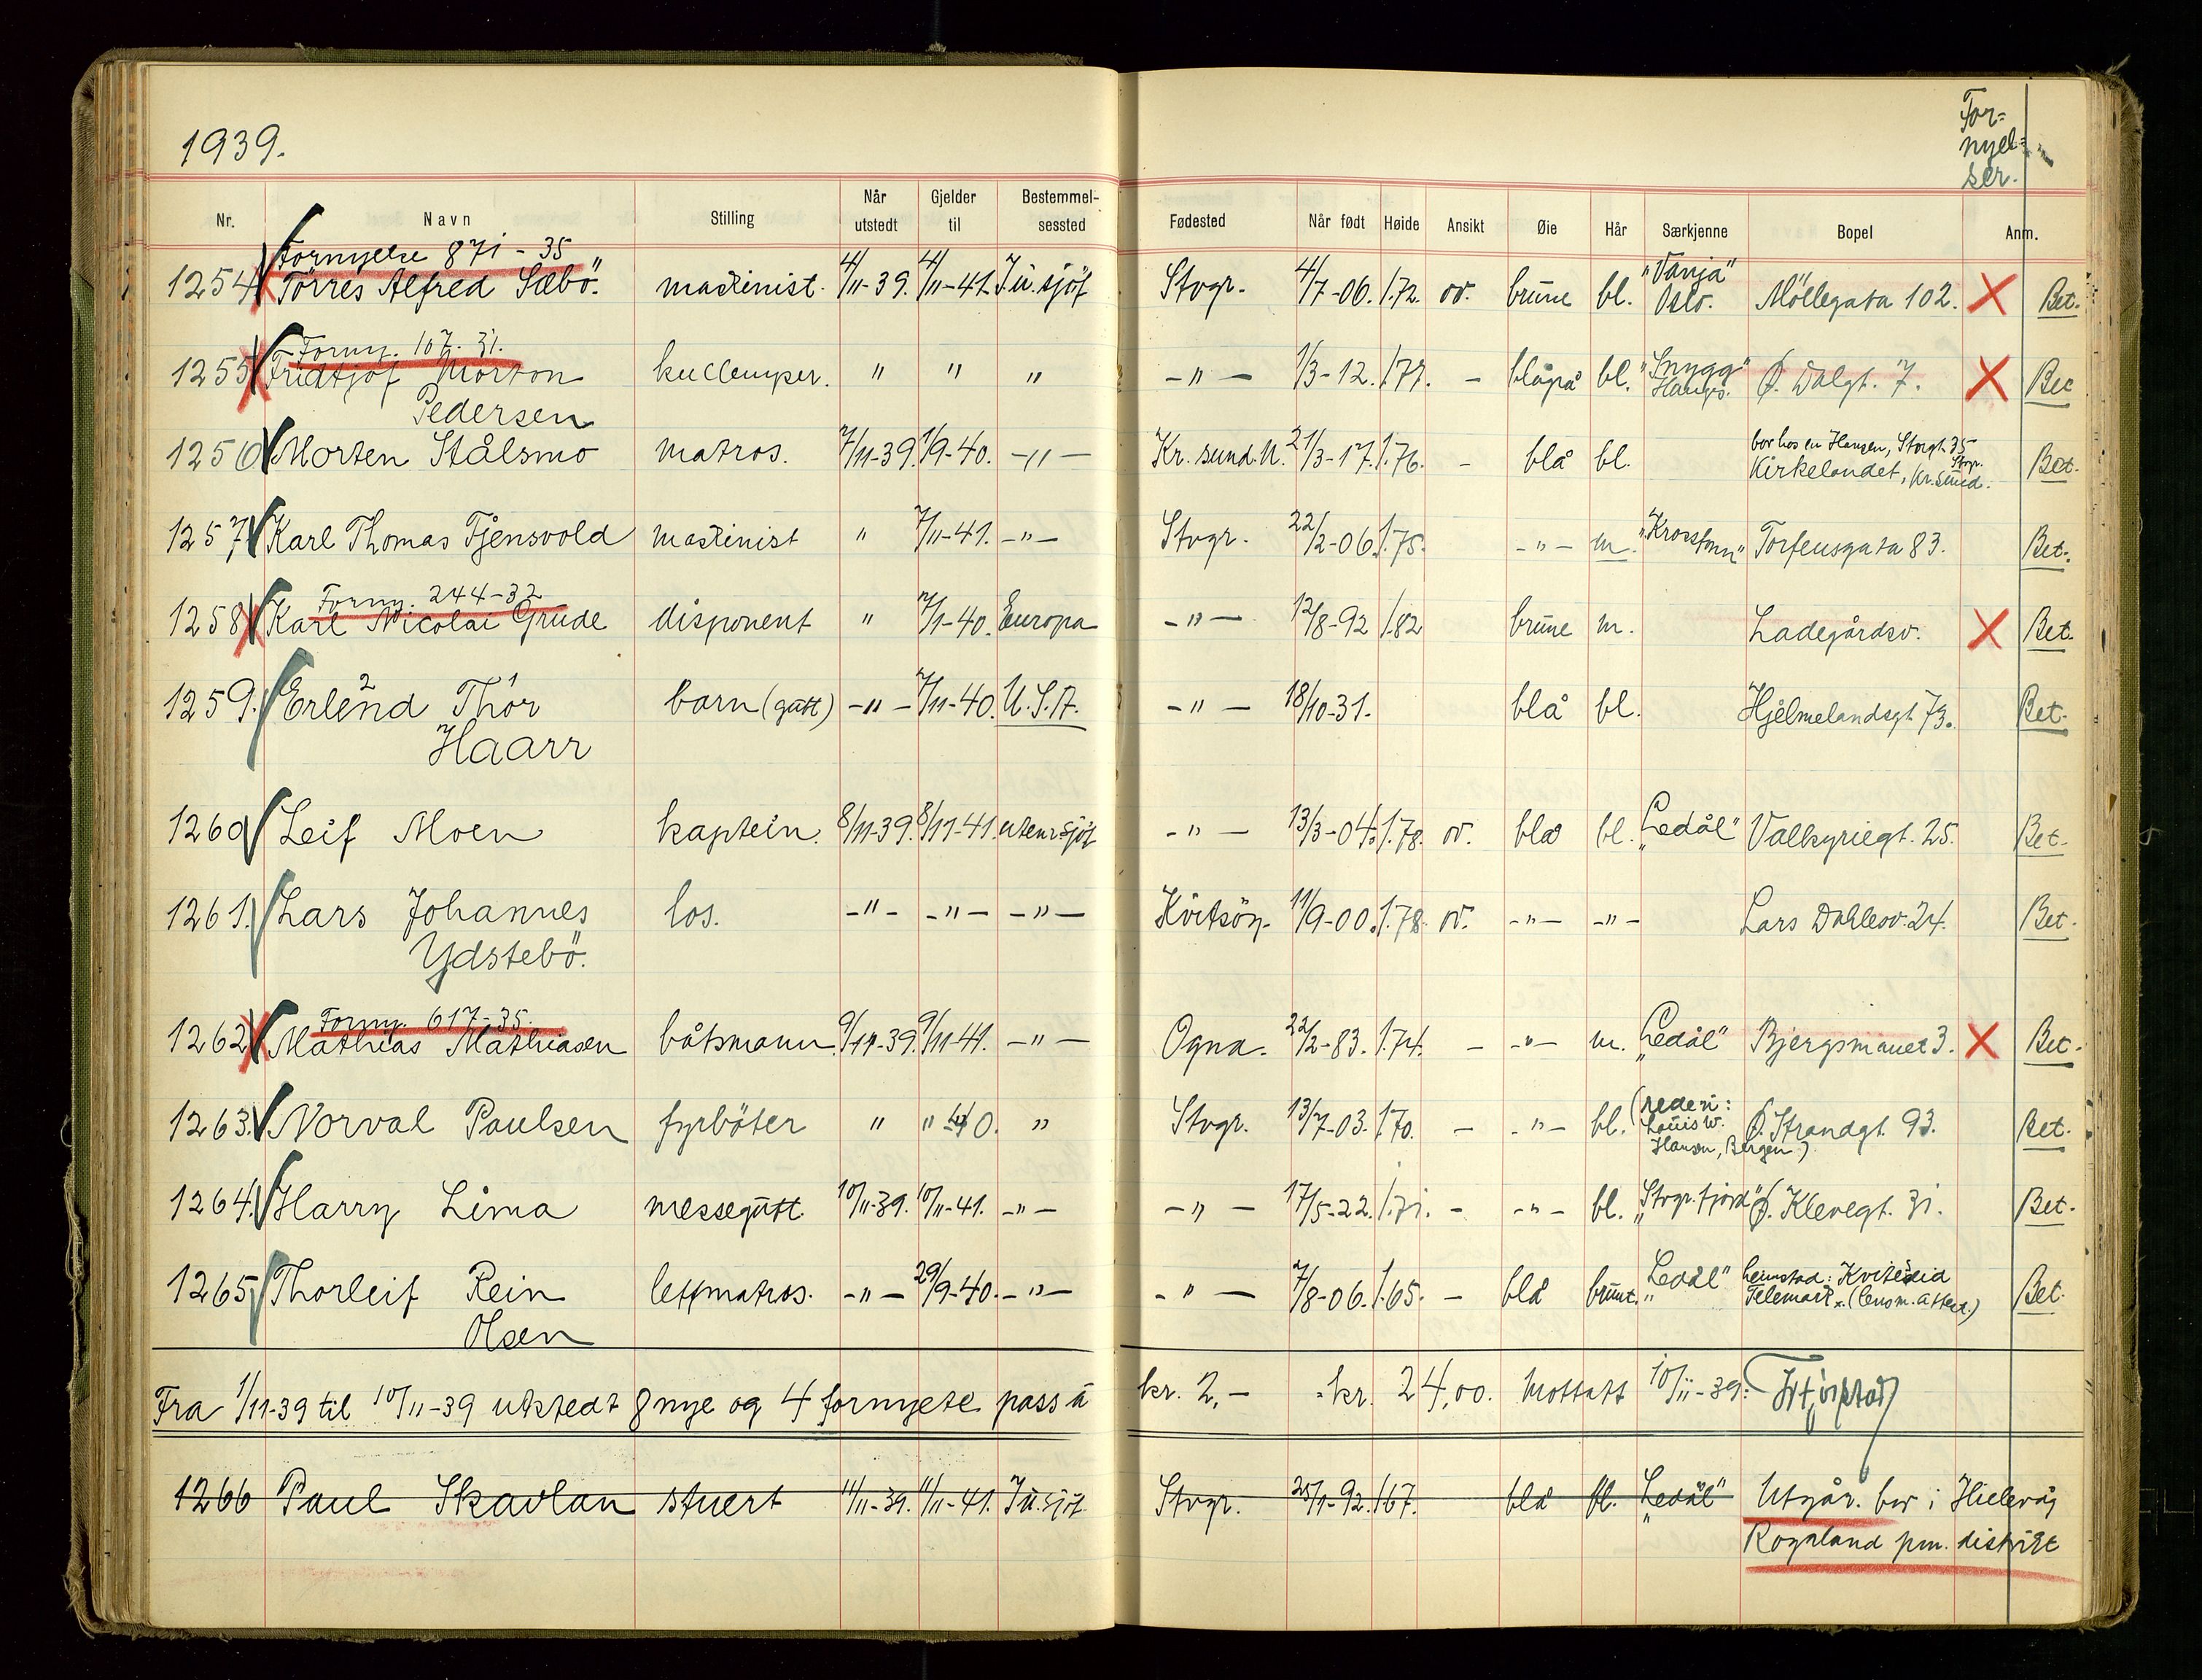 1939.
For-
nyel-
ser.
Nr. Navn Stilling Når utstedt Gjelder til Bestemmel-sessted Fødested Når født Høide Ansikt Øie Hår Særkjenne Bopel Anm.
Fornyelse 871 - 35 "Vanja"
1254 Torres Alfred Sæbö. maskinist. 4/11-39. 4/11-41. I u. sjöf Stvgr. 4/7-06. 1.72. ov. brune bl. Oslo. Möllegata 102. X Bet.
Forny. 107. 31. "Snygg"
1255 Fridtjof Morton kullemper. " " " -"- 1/3-12. 1.77. - blågrå bl. Haugs. Ø. Dalgt. 7. X Bet
Pedersen
bor hos en Hansen, Storgt. 35
Stvgr.
1256 Morten Stålsmo matros. 7/11-39. 1/9-40. -"- Kr. sund. N. 21/3-17. 1.76. - blå bl. Kirkelandet, Kr. sund. Bet.
1257 Karl Thomas Tjensvold maskinist " 7/11-41. -"- Stvgr. 22/2-06. 1.75. -"- m. "Krossfonn" Torfeusgata 83. Bet.
Forny. 244-32
1258 Karl Nicolai Grude disponent " 7/1-40. Europa -"- 12/8-92 1.82 brune m. Ladegårdsv. X Bet.
2 1
1259. Erlend Thor barn (gutt) -"- 7/11-40. U.S.A. -"- 18/10-31. blå bl. Hjelmelandsgt. 73. Bet.
Haarr
1260 Leif Moen kaptein. 8/11-39. 8/11-41. utenr. sjöf -"- 13/3-04. 1.78. ov. blå bl. "Ledål" Valkyriegt. 25. Bet.
1261. Lars Johannes los. -"- -"- -"- Kvitsöy. 11/9-00. 1.78. ov. -"- -"- Lars Dahlesv. 24. Bet.
Ydstebö.
Forny. 617-35.
1262 Mathias Mathiasen båtsmann. 9/11-39. 9/11-41. -"- Ogna. 22/2-83. 1.74. - -"- m. "Ledål" Bjergsmauet 3. X Bet.
(rederi:
1263. Norval Paulsen fyrböter " " -40. " Stvgr. 13/7-03. 1.70. - -"- bl. Louis W. Ø. Strandgt. 93. Bet.
Hansen, Bergen)
1264. Harry Lima messegutt. 10/11-39. 10/11-41. -"- -"- 17/5-22. 1.71. - -"- bl. "Stvgr. fjord" Ø. Klevegt. 31. Bet.
1265 Thorleif Rein lettmatros. -"- 29/9-40. -"- -"- 7/8-06. 1.65. - blå brunt. "Ledål" heimstad: Kviteseid Bet.
Telemark. (lensm. attest.)
Olsen
Fra 1/11-39 til 10/11-39 utstedt 8 nye og 4 fornyete pass à kr. 2,- = kr. 24,00. Mottatt 10/11-39:
1266 Paul Skavlan stuert 11/11-39. 11/11-41. I u. sjöf. Stvgr. 25/1-92. 1.67. blå bl. "Ledål" Utgår. bor i Hillevåg
Rogaland pm. distrikt